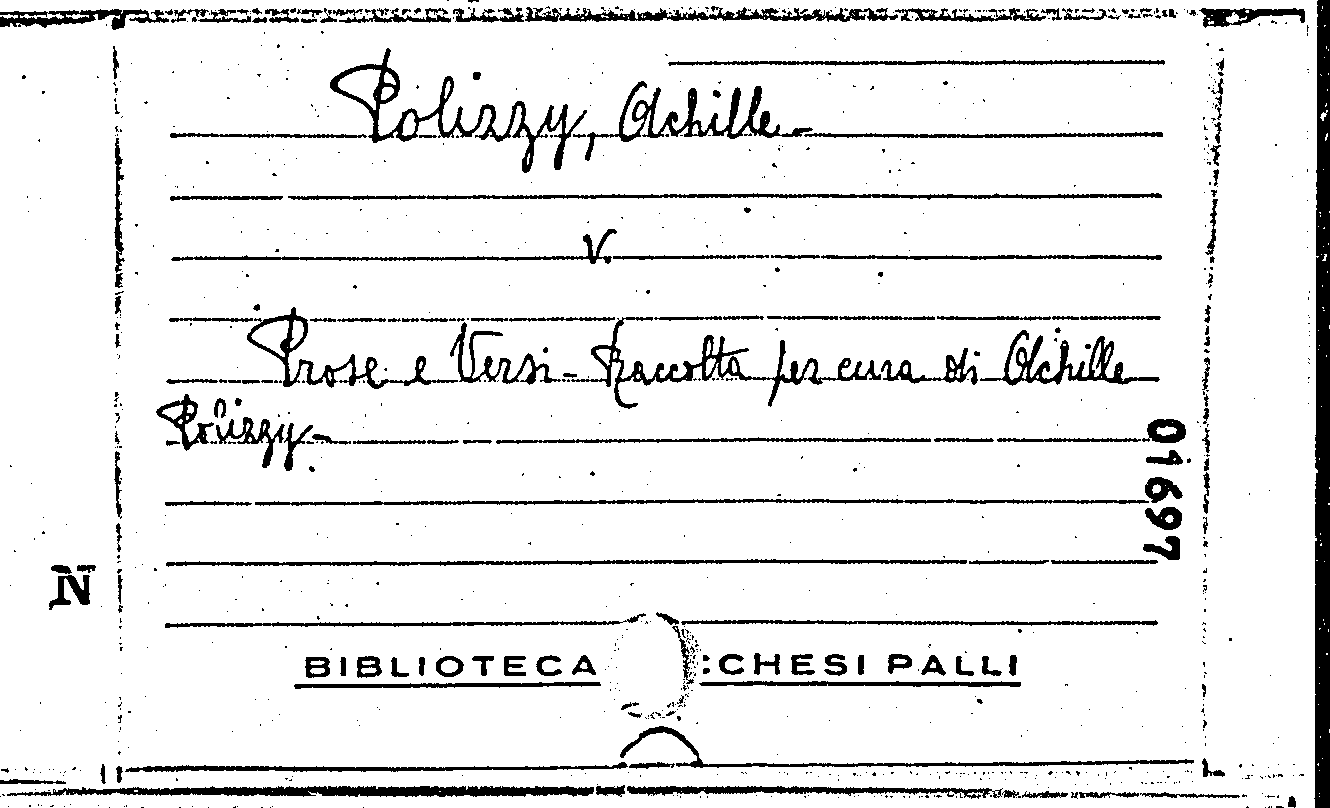 Polizzy, Achille -
V.
Prose e Versi - Raccolta per cura di Achille
Polizzy -
01697
N
BIBLIOTECA CHESI PALLI